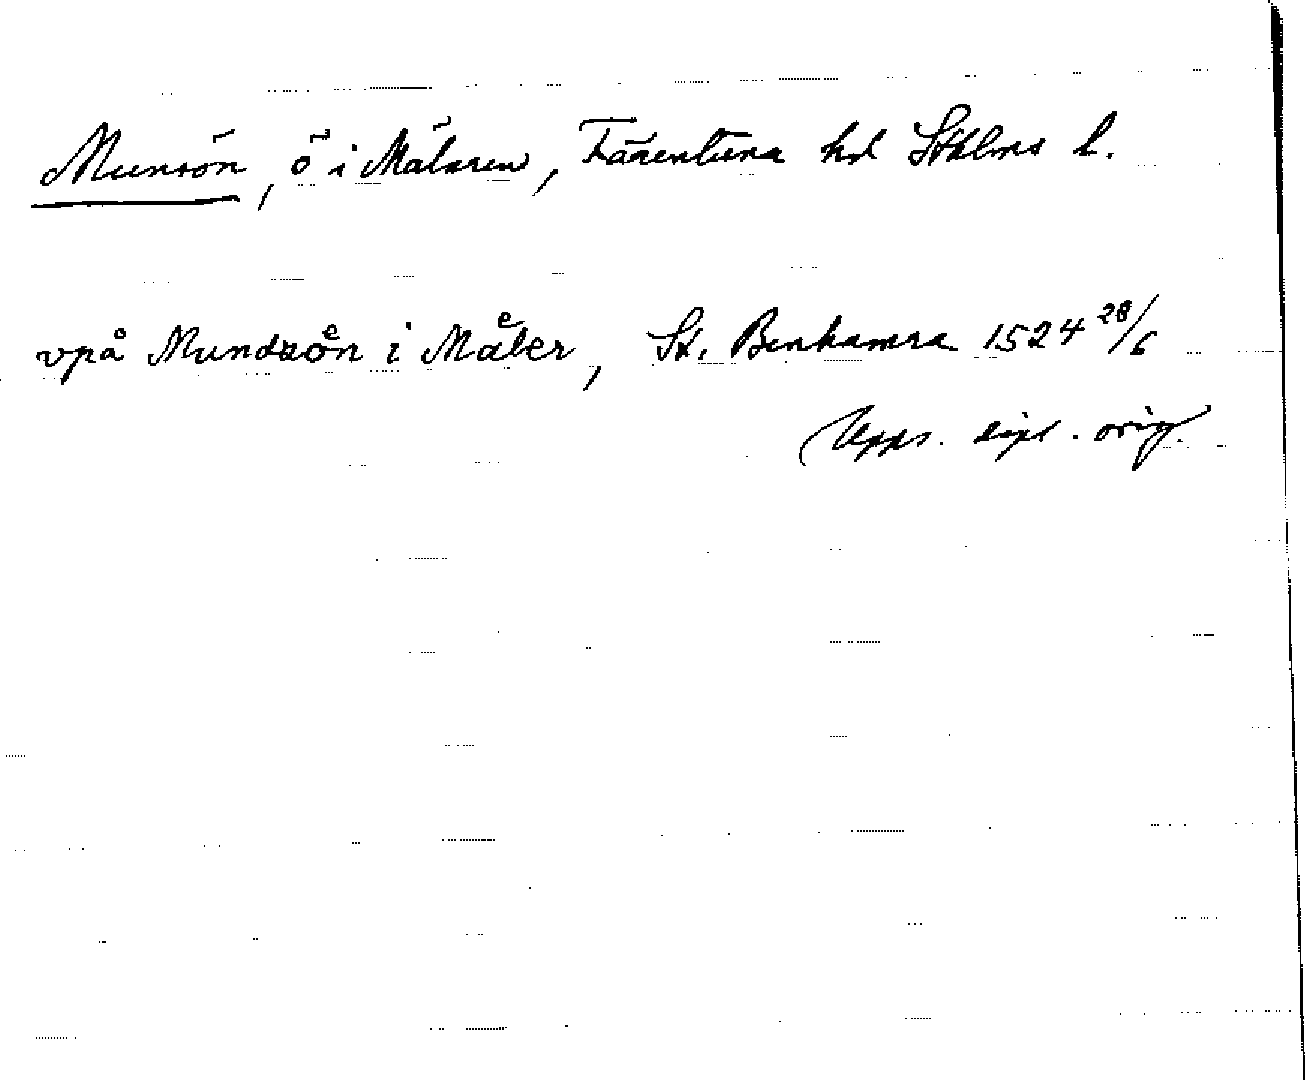 Munsön, ö i Mälaren, Färentuna hd Sthlms l.
vpå Mundzoͤn i Maͤler, St. Benhamra 1524 28/6
(Upps. dipl. orig.